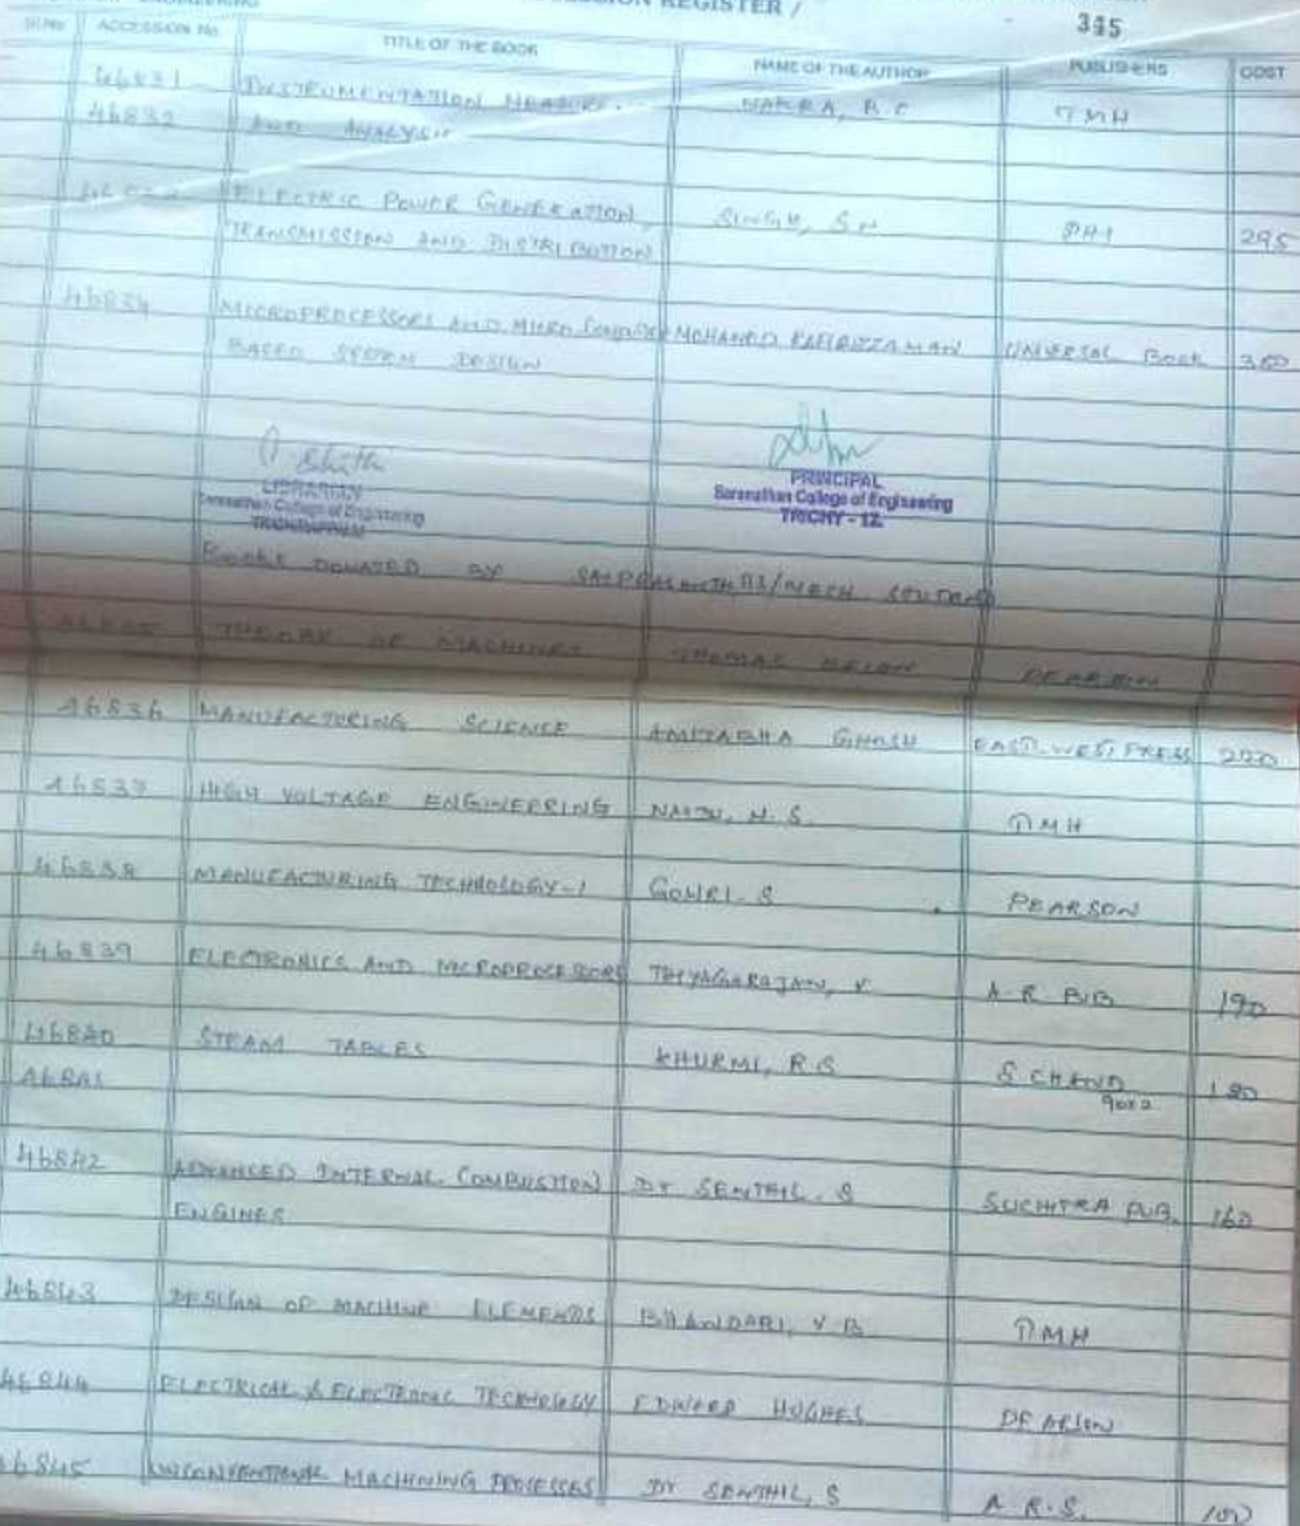 ENGINEERING
ACCESSION REGISTER /
345
SI.No ACCESSION No TITLE OF THE BOOK NAME OF THE AUTHOR PUBLISHERS COST
46831 INSTRUMENTATION MEASURE. NAKRA, B.C TMH
46832 AND ANALYSIS
ELECTRIC POWER GENERATION, SINGH, S N PHI 295
TRANSMISSION AND DISTRIBUTION
46834 MICROPROCESSORS AND MICRO MOHAMED RAFIQUZZAMAN UNIVERSAL BOOK 350
BASED SYSTEM DESIGN
LIBRARIAN
Saranathan College of Engineering
PRINCIPAL
Saranathan College of Engineering
TRICHY - 12.
BOOKS DONATED BY SAIPRASANTH /MECH
46835 THEORY OF MACHINES THOMAS BEVAN PEARSON
46836 MANUFACTURING SCIENCE AMITABHA GHOSH EAST WEST PRESS
46837 HIGH VOLTAGE ENGINEERING NAIDU, M. S. TMH
46838 MANUFACTURING TECHNOLOGY-I GOWRI. S PEARSON
46839 ELECTRONICS AND MICROPROCESSORS THYAGARAJAN, V A R PUB 190
46840 STEAM TABLES KHURMI, R.S S CHAND
46841 90x2
46842 ADVANCED INTERNAL COMBUSTION Dr SENTHIL. S SUCHITRA PUB. 160
ENGINES
46843 DESIGN OF MACHINE ELEMENTS BHANDARI, V B TMH
46844 ELECTRICAL & ELECTRONIC TECHNOLOGY EDWARD HUGHES PEARSON
46845 UNCONVENTIONAL MACHINING PROCESSES Dr SENTHIL, S A.R.S. 100